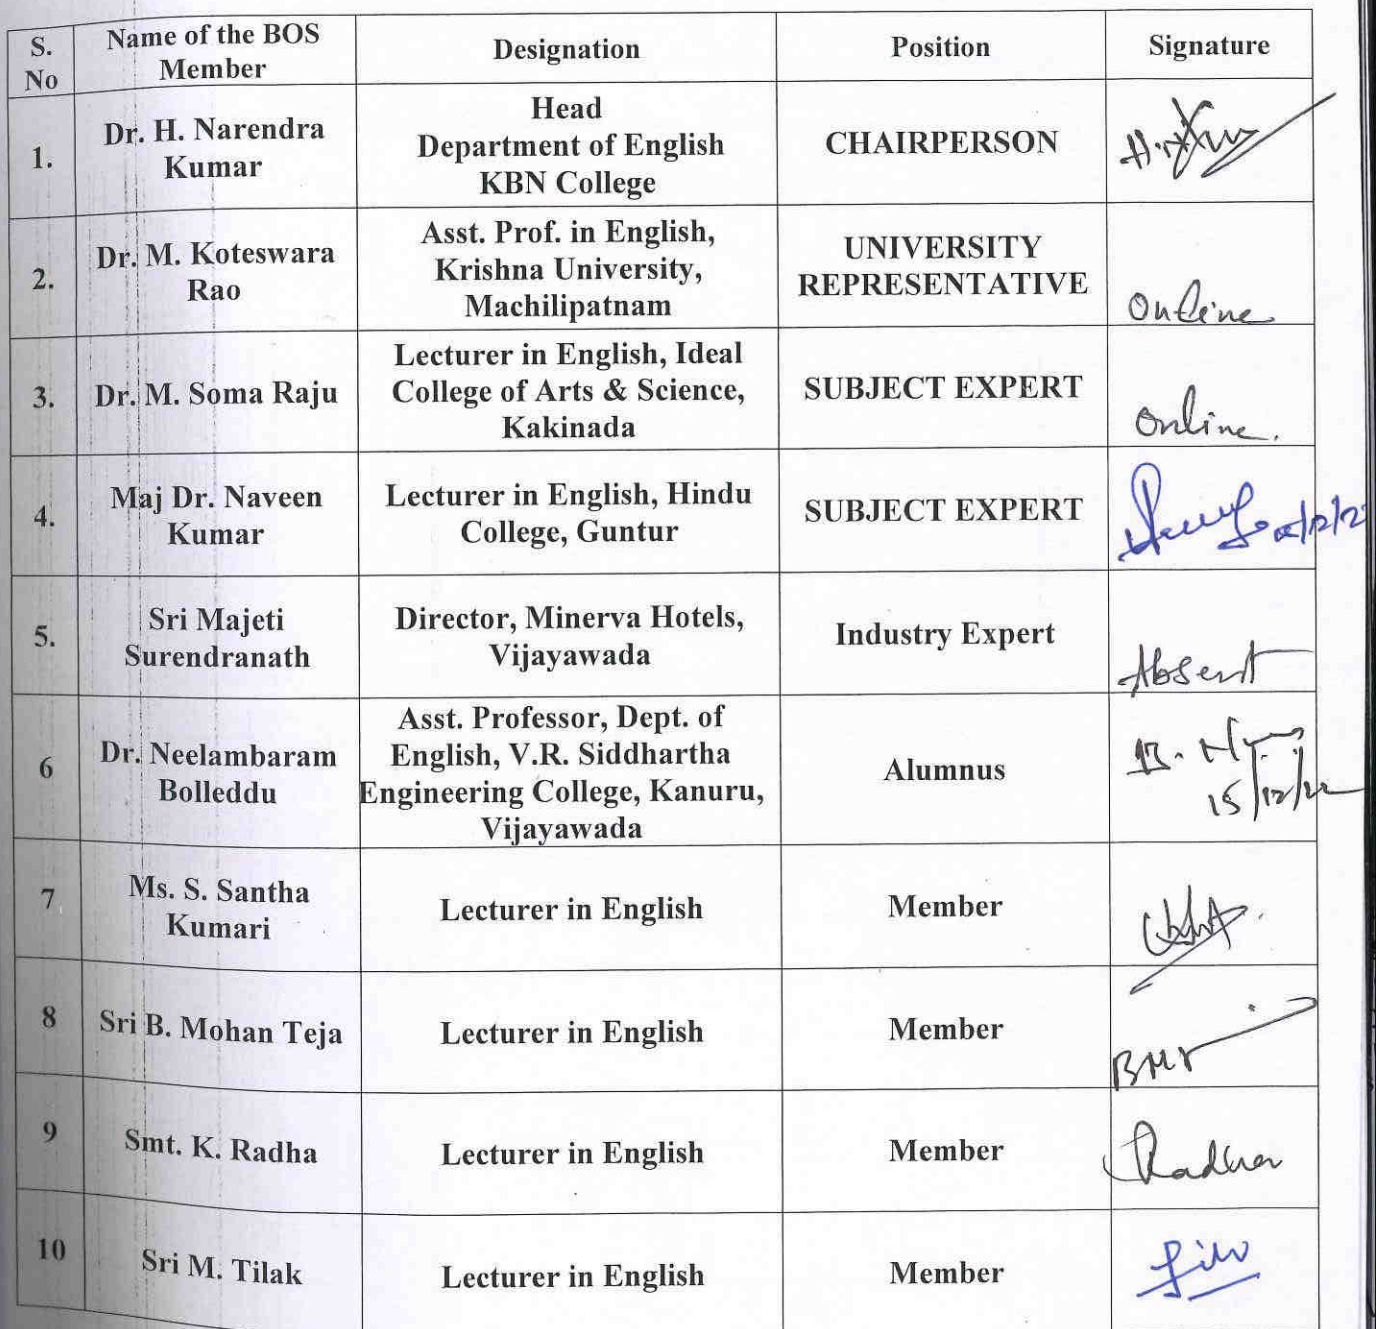 S.
No
Name of the BOS
Member
Designation
Position
Signature
1.
Dr. H. Narendra
Kumar
Head
Department of English
KBN College
CHAIRPERSON
2.
Dr. M. Koteswara
Rao
Asst. Prof. in English,
Krishna University,
Machilipatnam
UNIVERSITY
REPRESENTATIVE
Online
3.
Dr. M. Soma Raju
Lecturer in English, Ideal
College of Arts & Science,
Kakinada
SUBJECT EXPERT
Online.
4.
Maj Dr. Naveen
Kumar
Lecturer in English, Hindu
College, Guntur
SUBJECT EXPERT
5.
Sri Majeti
Surendranath
Director, Minerva Hotels,
Vijayawada
Industry Expert
Absent
6
Dr. Neelambaram
Bolleddu
Asst. Professor, Dept. of
English, V.R. Siddhartha
Engineering College, Kanuru,
Vijayawada
Alumnus
15/12/22
7
Ms. S. Santha
Kumari
Lecturer in English
Member
8
Sri B. Mohan Teja
Lecturer in English
Member
BMT
9
Smt. K. Radha
Lecturer in English
Member
Radha
10
Sri M. Tilak
Lecturer in English
Member